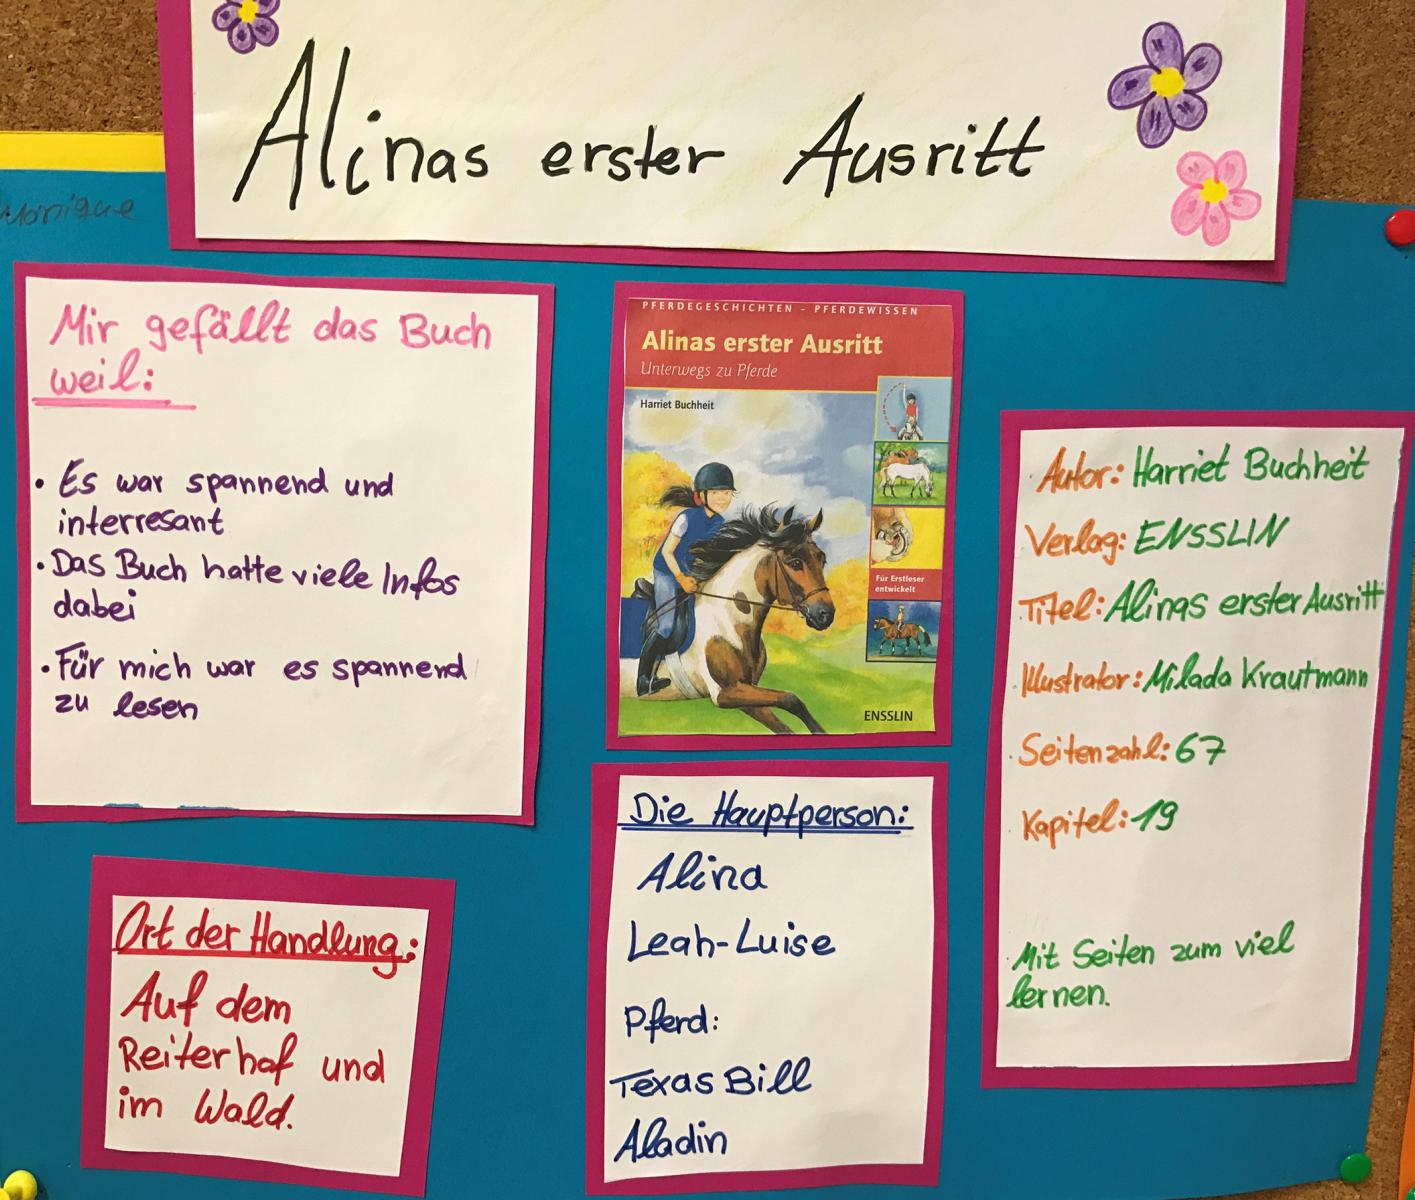 Alinas erster Ausritt
Monique
Mir gefällt das Buch
weil:
• Es war spannend und
interresant
• Das Buch hatte viele Infos
dabei
• Für mich war es spannend
zu lesen
Ort der Handlung:
Auf dem
Reiterhof und
im Wald.
PFERDEGESCHICHTEN - PFERDEWISSEN
Alinas erster Ausritt
Unterwegs zu Pferde
Harriet Buchheit
Für Erstleser
entwickelt
ENSSLIN
Die Hauptperson:
Alina
Leah-Luise
Pferd:
Texas Bill
Aladin
Autor: Harriet Buchheit
Verlag: ENSSLIN
Titel: Alinas erster Ausritt
Illustrator: Milada Krautmann
Seitenzahl: 67
Kapitel: 19
Mit Seiten zum viel
lernen.